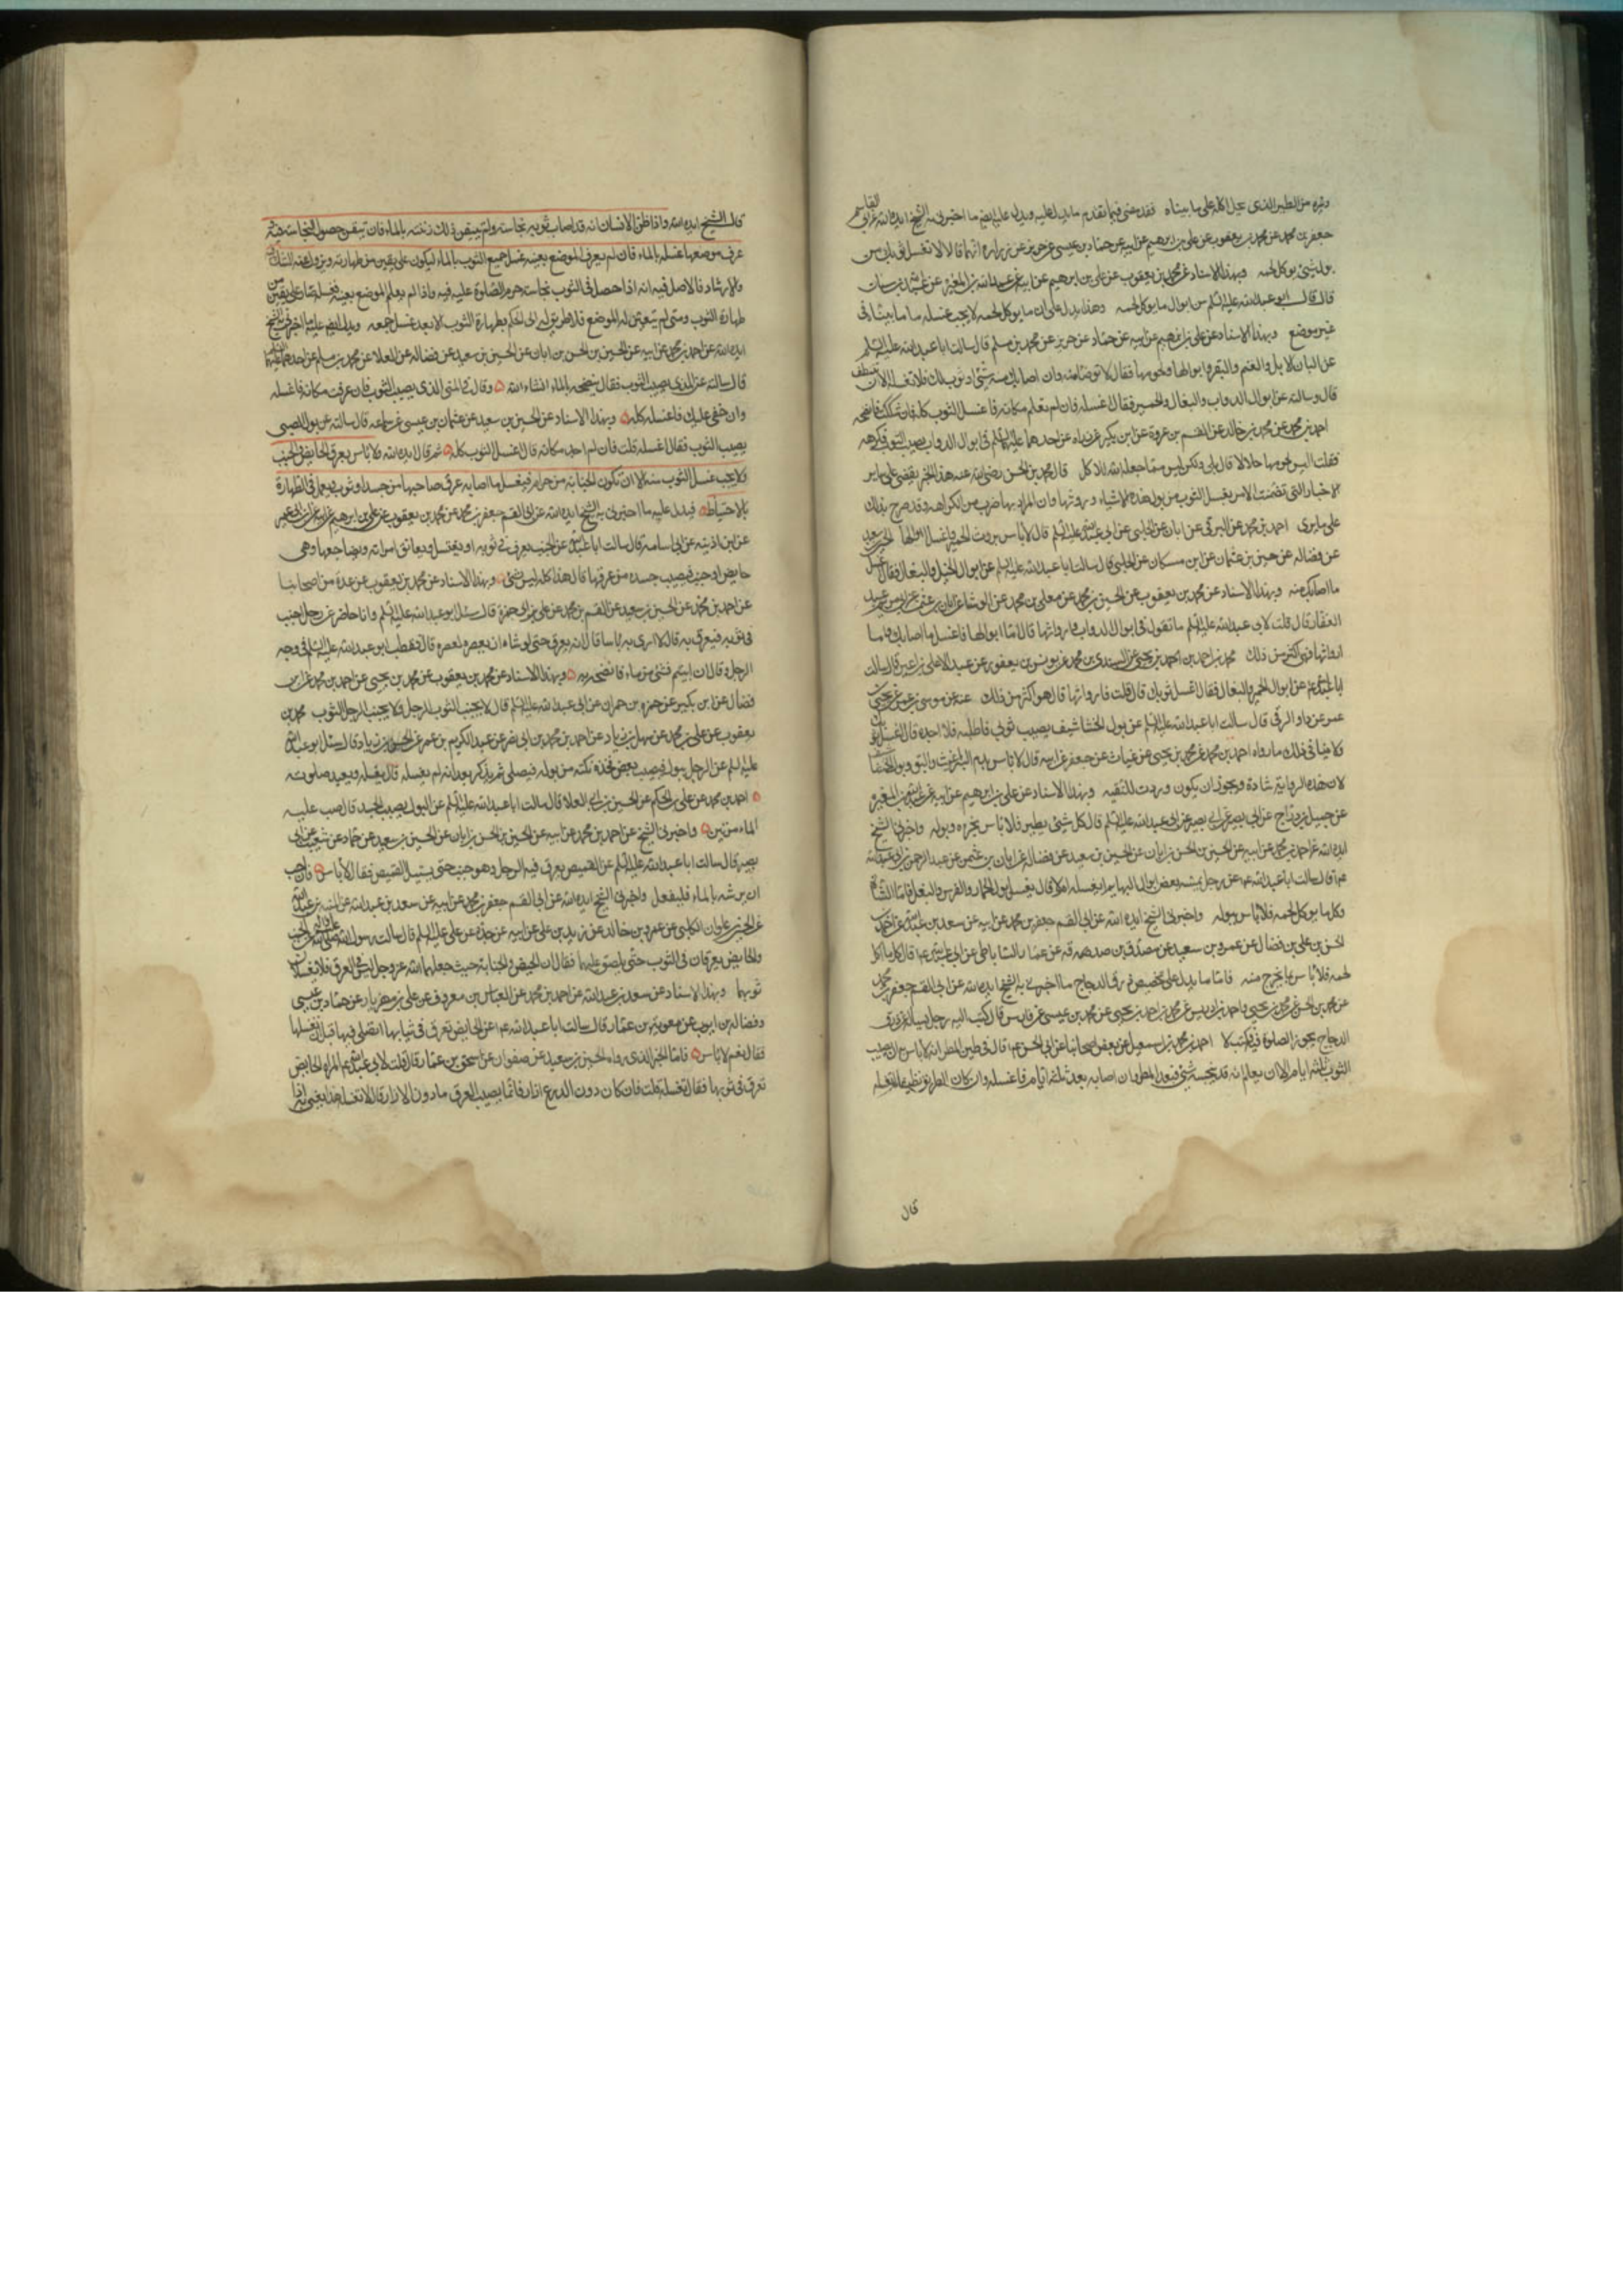 وغيره من الطير الذي يحل اكله على ما بيناه فقد مضى فيما تقدم ما يدل عليه ويدل عليه ايضا ما اخبرني به الشيخ ايده الله عن ابي القاسم
جعفر بن محمد عن محمد بن يعقوب عن علي بن ابرهيم عن ابيه عن حماد بن عيسى عن حريز عن زرارة انهما قالا لا تغسل ثوبك من
بول شئ يوكل لحمه وبهذا الاسناد عن محمد بن يعقوب عن علي بن ابرهيم عن ابيه عن عبد الله بن المغيرة عن عبد الله بن سنان
قال قال ابو عبد الله عليه السلم من ابوال ما يوكل لحمه وهذا يدل على ان ما يوكل لحمه لا يجب غسله
غير موضع وبهذا الاسناد عن علي بن ابرهيم عن ابيه عن حماد عن حريز عن محمد بن مسلم قال سالت ابا عبد الله عليه السلم
عن البان الابل والغنم والبقر وابوالها ولحومها فقال لا توضا منه وان اصابك منه شئ او ثوبك فلا تغسله الا ان تتنظف
قال وسالته عن ابوال الدواب والبغال والحمير فقال اغسله فان لم تعلم مكانه فاغسل الثوب كله فان شككت فانضحه
احمد بن محمد عن محمد بن خالد عن القسم بن عروة عن ابن بكير عن زرارة عن احدهما عليهما السلم في ابوال الدواب يصيب الثوب فكرهه
فقلت اليس لحومها حلالا قال بلى ولكن ليس مما جعله الله للاكل قال محمد بن الحسن رضي الله عنه هذا الخبر يقضي على ساير
الاخبار التي تضمنت الامر بغسل الثوب من بول هذه الاشياء وروثها وان المراد بها ضرب من الكراهه وقد صرح بذلك
على ما يرى احمد بن محمد عن البرقي عن ابان عن الحلبي عن ابي عبد الله عليه السلم قال لا باس بروث الحمير واغسل ابوالها الحسين بن سعيد
عن فضاله عن حسين بن عثمان عن ابن مسكان عن الحلبي قال سالت ابا عبد الله عليه السلم عن ابوال الخيل والبغال فقال اغسل
ما اصابك منه وبهذا الاسناد عن محمد بن يعقوب عن الحسين بن محمد عن معلى بن محمد عن الوشا عن ابان بن عثمن عن ابي مريم
قال قلت لابي عبد الله عليه السلم ما تقول في ابوال الدواب وارواثها قال اما ابوالها فاغسل ما اصابك واما
ارواثها فهي اكثر من ذلك محمد بن احمد بن يحيى عن السندي بن محمد عن يونس بن يعقوب عن عبد الاعلى بن اعين قال سالت
ابا عبد الله ع عن ابوال الحمير والبغال فقال اغسل ثوبك قال قلت فارواثها قال هو اكثر من ذلك عنه عن موسى بن عمر عن يحيى بن
عمر عن داود الرقي قال سالت ابا عبد الله عليه السلم عن بول الخشاشيف يصيب ثوبي فاطلبه فلا اجده قال اغسل ثوبك
فلا ينافي ذلك ما رواه احمد بن محمد عن محمد بن يحيى عن غياث عن جعفر عن ابيه قال لا باس بدم البراغيث والبق وبول الخشاشيف
لان هذه الرواية شاذة ويجوز ان يكون وردت للتقيه وبهذا الاسناد عن علي بن ابرهيم عن ابيه عن عبد الله بن المغيرة
عن جميل بن دراج عن ابي بصير عن ابي عبد الله عليه السلم قال كل شئ يطير فلا باس بخرءه وبوله واخبرني الشيخ
ايده الله عن احمد بن محمد عن ابيه عن الحسين بن الحسن بن ابان عن الحسين بن سعيد عن فضاله عن ابان بن عثمن عن عبد الرحمن بن ابي عبد الله
قال سالت ابا عبد الله ع عن رجل يمسه بعض ابوال البهايم ايغسله ام لا قال يغسل بول الحمار والفرس والبغل فاما الشاة
وكل ما يوكل لحمه فلا باس ببوله واخبرني الشيخ ايده الله عن ابي القسم جعفر بن محمد عن ابيه عن سعد بن عبد الله عن احمد بن
الحسن بن علي بن فضال عن عمرو بن سعيد عن مصدق بن صدقه عن عمار الساباطي عن ابي عبد الله ع قال كل ما اكل
لحمه فلا باس بما يخرج منه فاما ما يدل على تخصيص ذرق الدجاج ما اخبرني به الشيخ ايده الله عن ابي القسم جعفر بن محمد
عن محمد بن الحسن عن محمد بن يحيى واحمد بن ادريس عن محمد بن احمد بن يحيى عن محمد بن عيسى عن فارس قال كتب اليه رجل يساله عن ذرق
الدجاج يجوز الصلوة فيه فكتب لا احمد بن محمد عن بعض اصحابنا عن ابي الحسن ع قال في طين المطر انه لا باس به ان يصيب
الثوب ثلثه ايام الا ان يعلم انه قد نجسه شئ فبعد المطر وان اصابه بعد ثلثه ايام فاغسله وان كان الطريق نظيفا لم تغسله
قال
قال الشيخ ايده الله واذا ظن الانسان انه قد اصاب ثوبه نجاسة ولم يتيقن ذلك رشه بالماء فان تيقن حصول النجاسة فيه و
عرف موضعها غسله بالماء فان لم يعرف الموضع بعينه غسل جميع الثوب بالماء ليكون على يقين من طهارته ويزول عنه الشك
والارتياب فالاصل فيه انه اذا حصل في الثوب نجاسة حرم الصلوة عليه فيه واذا لم يعلم الموضع بعينه فغسله صار على يقين من
طهارة الثوب ومتى لم يتعين له الموضع فلا طريق له الى الحكم بطهارة الثوب الا بعد غسل جميعه ويدل ايضا عليه ما اخبرني به الشيخ
ايده الله عن احمد بن محمد عن ابيه عن الحسين بن الحسن بن ابان عن الحسين بن سعيد عن فضاله عن العلا عن محمد بن مسلم عن احدهما عليهما السلم
قال سالته عن المذي يصيب الثوب فقال ينضحه بالماء انشاء الله وقال في المني الذي يصيب الثوب فان عرفت مكانه فاغسله
وان خفي عليك فاغسله كله وبهذا الاسناد عن الحسين بن سعيد عن عثمان بن عيسى عن سماعه قال سالته عن بول الصبي
يصيب الثوب فقال اغسله قلت فان لم اجد مكانه قال اغسل الثوب كله ثم قال ايده الله ولا باس بعرق الحايض والجنب
ولا يجب غسل الثوب منه الا ان تكون الجنابة من حرام فيغسل ما اصابه عرق صاحبها من جسد او ثوب ويعمل في الطهارة
بالاحتياط فيدل عليه ما اخبرني به الشيخ ايده الله عن ابي القسم جعفر بن محمد عن محمد بن يعقوب عن علي بن ابرهيم عن ابيه عن ابن ابي عمير
عن ابن اذينه عن ابي اسامه قال سالت ابا عبد الله ع عن الجنب يعرق في ثوبه او يغتسل فيعانق امراته ويضاجعها وهي
حايض او جنب فيصيب جسده من عرقها قال هذا كله ليس بشئ وبهذا الاسناد عن محمد بن يعقوب عن عدة من اصحابنا
عن احمد بن محمد عن الحسين بن سعيد عن القسم بن محمد عن علي بن ابي حمزة قال سئل ابو عبد الله عليه السلم وانا حاضر عن رجل اجنب
في ثوبه فيعرق فيه قال لا ارى به باسا قال انه يعرق حتى لو شاء ان يعصره لعصره قال فقطب ابو عبد الله عليه السلم في وجه
الرجل وقال ان ابيتم فشئ من ماء فانضحه به وبهذا الاسناد عن محمد بن يعقوب عن محمد بن يحيى عن احمد بن محمد عن ابن
فضال عن ابن بكير عن حمزه بن حمران عن ابي عبد الله عليه السلم قال لا يجنب الثوب الرجل ولا يجنب الرجل الثوب محمد بن
يعقوب عن علي بن محمد عن سهل بن زياد عن احمد بن محمد بن ابي نصر عن عبد الكريم بن عمرو عن الحسن بن زياد قال سئل ابو عبد الله
عليه السلم عن الرجل يبول فيصيب بعض فخذه نكتة من بوله فيصلي ثم يذكر بعد انه لم يغسله قال يغسله ويعيد صلوته
احمد بن محمد عن علي بن الحكم عن الحسين بن ابي العلا قال سالت ابا عبد الله عليه السلم عن البول يصيب الجسد قال صب عليه
الماء مرتين واخبرني الشيخ عن احمد بن محمد عن ابيه عن الحسين بن الحسن بن ابان عن الحسين بن سعيد عن حماد عن شعيب عن ابي
بصير قال سالت ابا عبد الله عليه السلم عن القميص يعرق فيه الرجل وهو جنب حتى يبتل القميص فقال لا باس وان احب
ان يرشه بالماء فليفعل واخبرني الشيخ ايده الله عن ابي القسم جعفر بن محمد عن ابيه عن سعد بن عبد الله عن المنبه بن عبد الله
عن الحسين بن علوان الكلبي عن عمرو بن خالد عن زيد بن علي عن ابيه عن جده عن علي عليه السلم قال سالت رسول الله صلى الله عليه واله عن الجنب
والحايض يعرقان في الثوب حتى يلصق عليهما فقال ان الحيض والجنابة حيث جعلهما الله عز وجل ليس في العرق فلا يغسلان
ثوبهما وبهذا الاسناد عن سعد بن عبد الله عن احمد بن محمد عن العباس بن معروف عن علي بن مهزيار عن حماد بن عيسى
وفضالة بن ايوب عن معوية بن عمار قال سالت ابا عبد الله ع عن الحايض تعرق في ثيابها اتصلي فيها قبل ان تغسلها
فقال نعم لا باس فاما الخبر الذي رواه الحسين بن سعيد عن صفوان عن اسحق بن عمار قال قلت لابي عبد الله ع المراة الحايض
تعرق في ثوبها فقال تغسله قلت فان كان دون الدرع ازار فانما يصيب العرق ما دون الازار قال لا تغسله